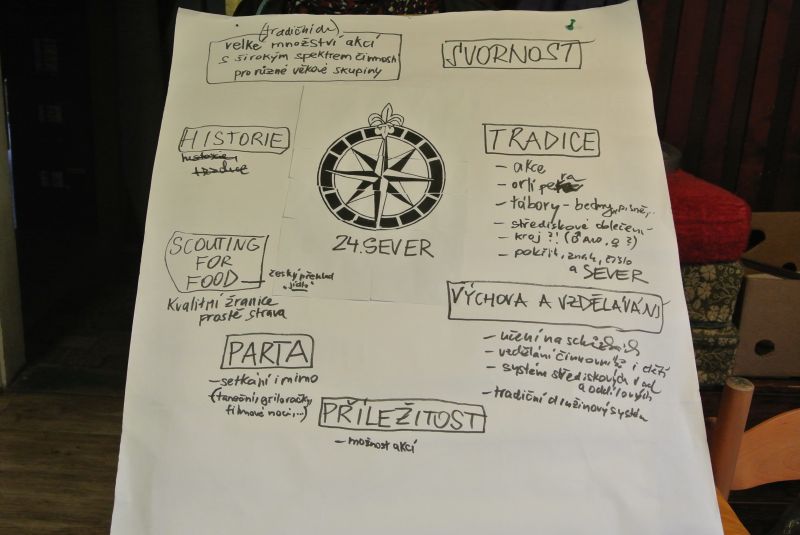 (tradičních)
velké množství akcí
s širokým spektrem činností
pro různé věkové skupiny
SVORNOST
HISTORIE
historie
tradice
24. SEVER
TRADICE
- akce
- orlí pera
- tábory - bedny, písně,..
- střediskové oblečení
- kroj ?! (♂ ano, ♀ ?)
- pokřik, znak, číslo
a SEVER
SCOUTING
FOR
FOOD
český překlad
"jídlo"
Kvalitní žranice
prostě strava
VÝCHOVA A VZDĚLÁVÁNÍ
- učení na schůzkách
- vzdělání činovníků i dětí
- systém střediskových rad
a oddílových
- tradiční družinový systém
PARTA
- setkání i mimo
(taneční, grilovačky,
filmové noci,...)
PŘÍLEŽITOST
- možnost akcí